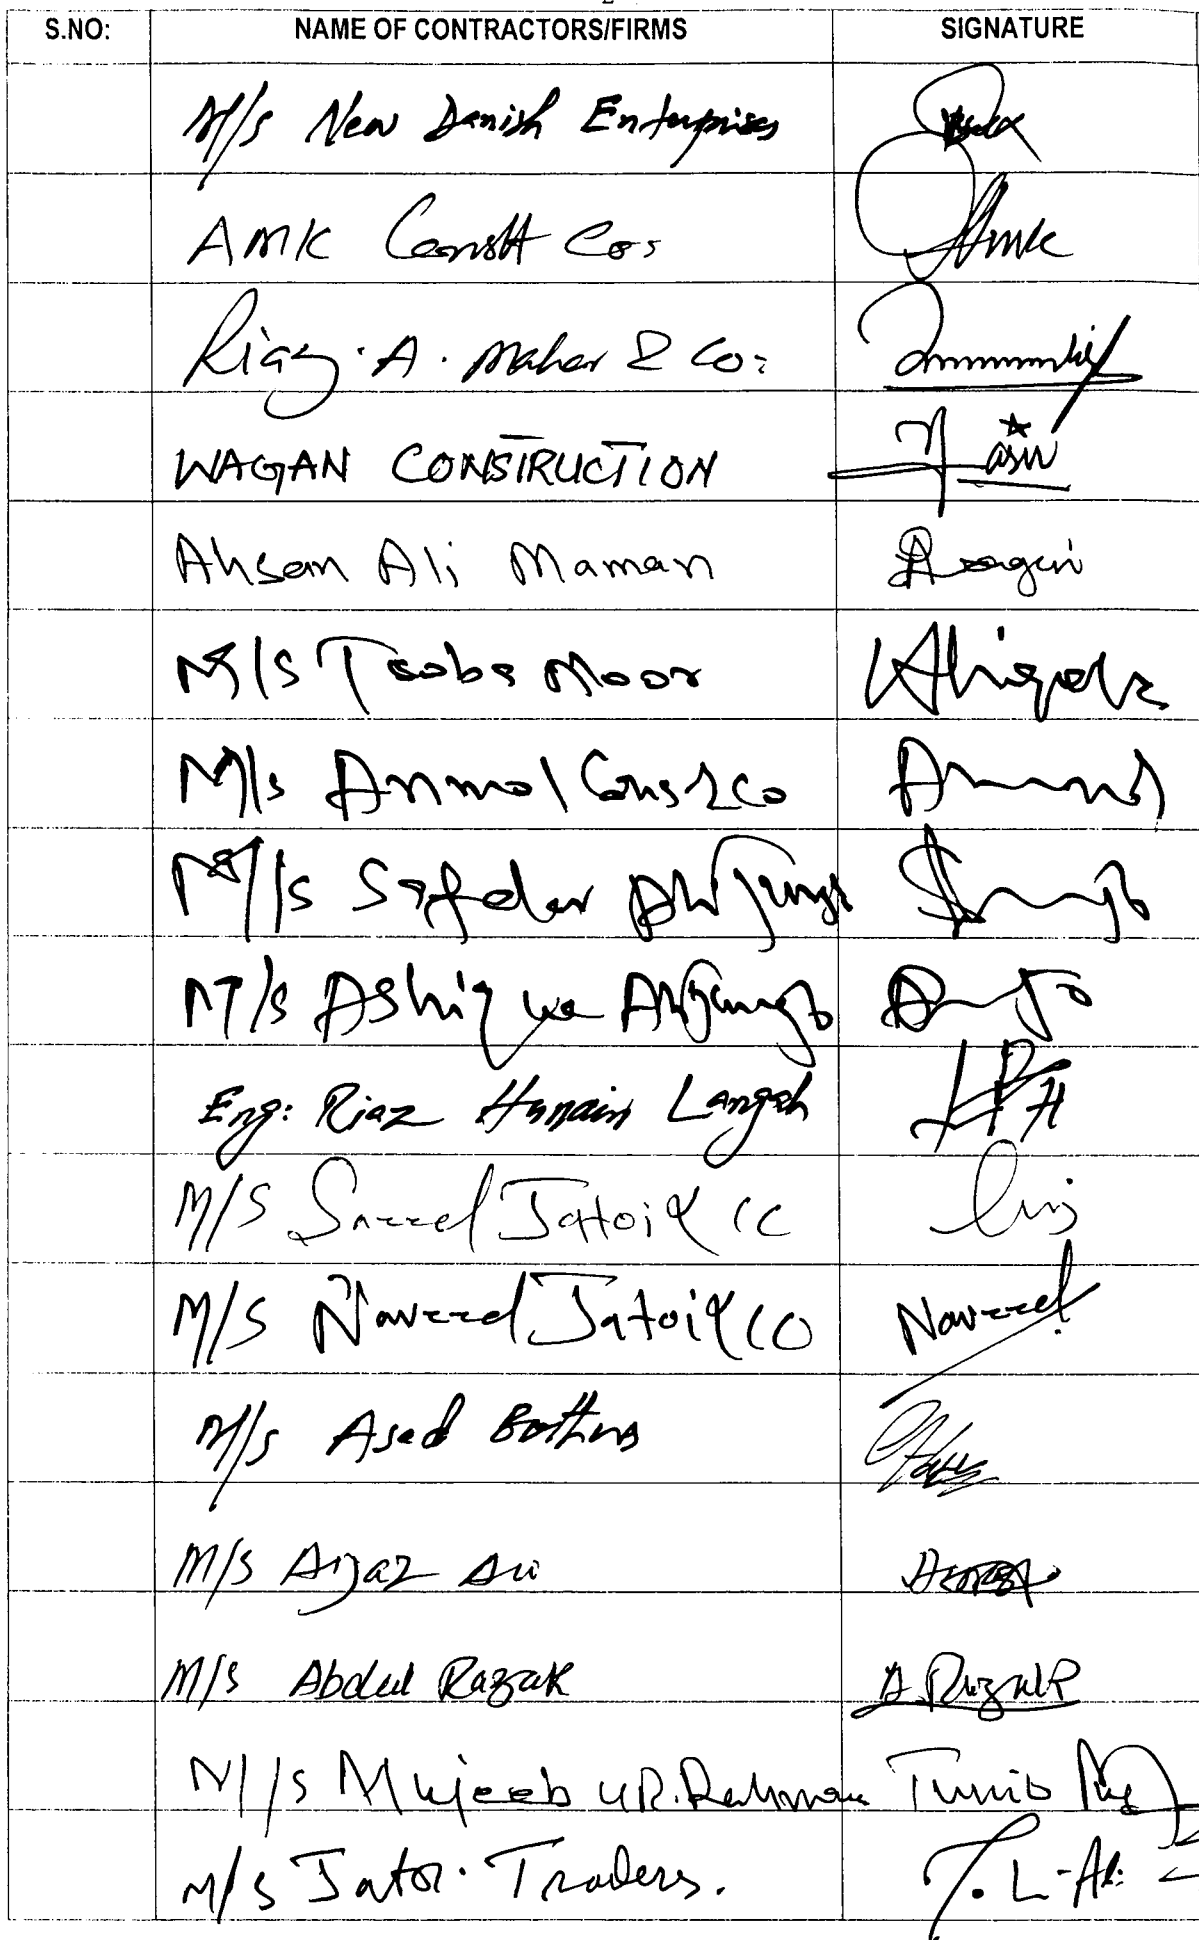 S.NO: NAME OF CONTRACTORS/FIRMS SIGNATURE
M/s New Danish Enterprises
AMK Constt Co: Amk
Riaz. A. Mahar & Co:
WAGAN CONSTRUCTION
Ahsan Ali Maman
M/S Tooba Noor
M/s Anmol Cons & Co
M/s Safdar Ali Jungo
M/s Ashique Ali Jungo
Eng: Riaz Hussain Langah
M/S Jatoi & CO
M/S Naveed Jatoi & CO Naveed
M/s Asad Brothers
M/S Aijaz Ali
M/S Abdul Razak A. Razak
M/s Mujeeb UR. Rehman Tunio
M/S Jatoi Traders.